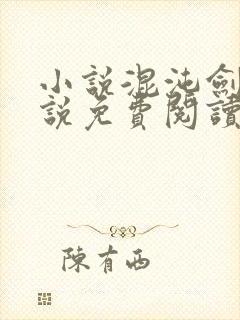 小說混沌劍
說免費閱讀
陳有西